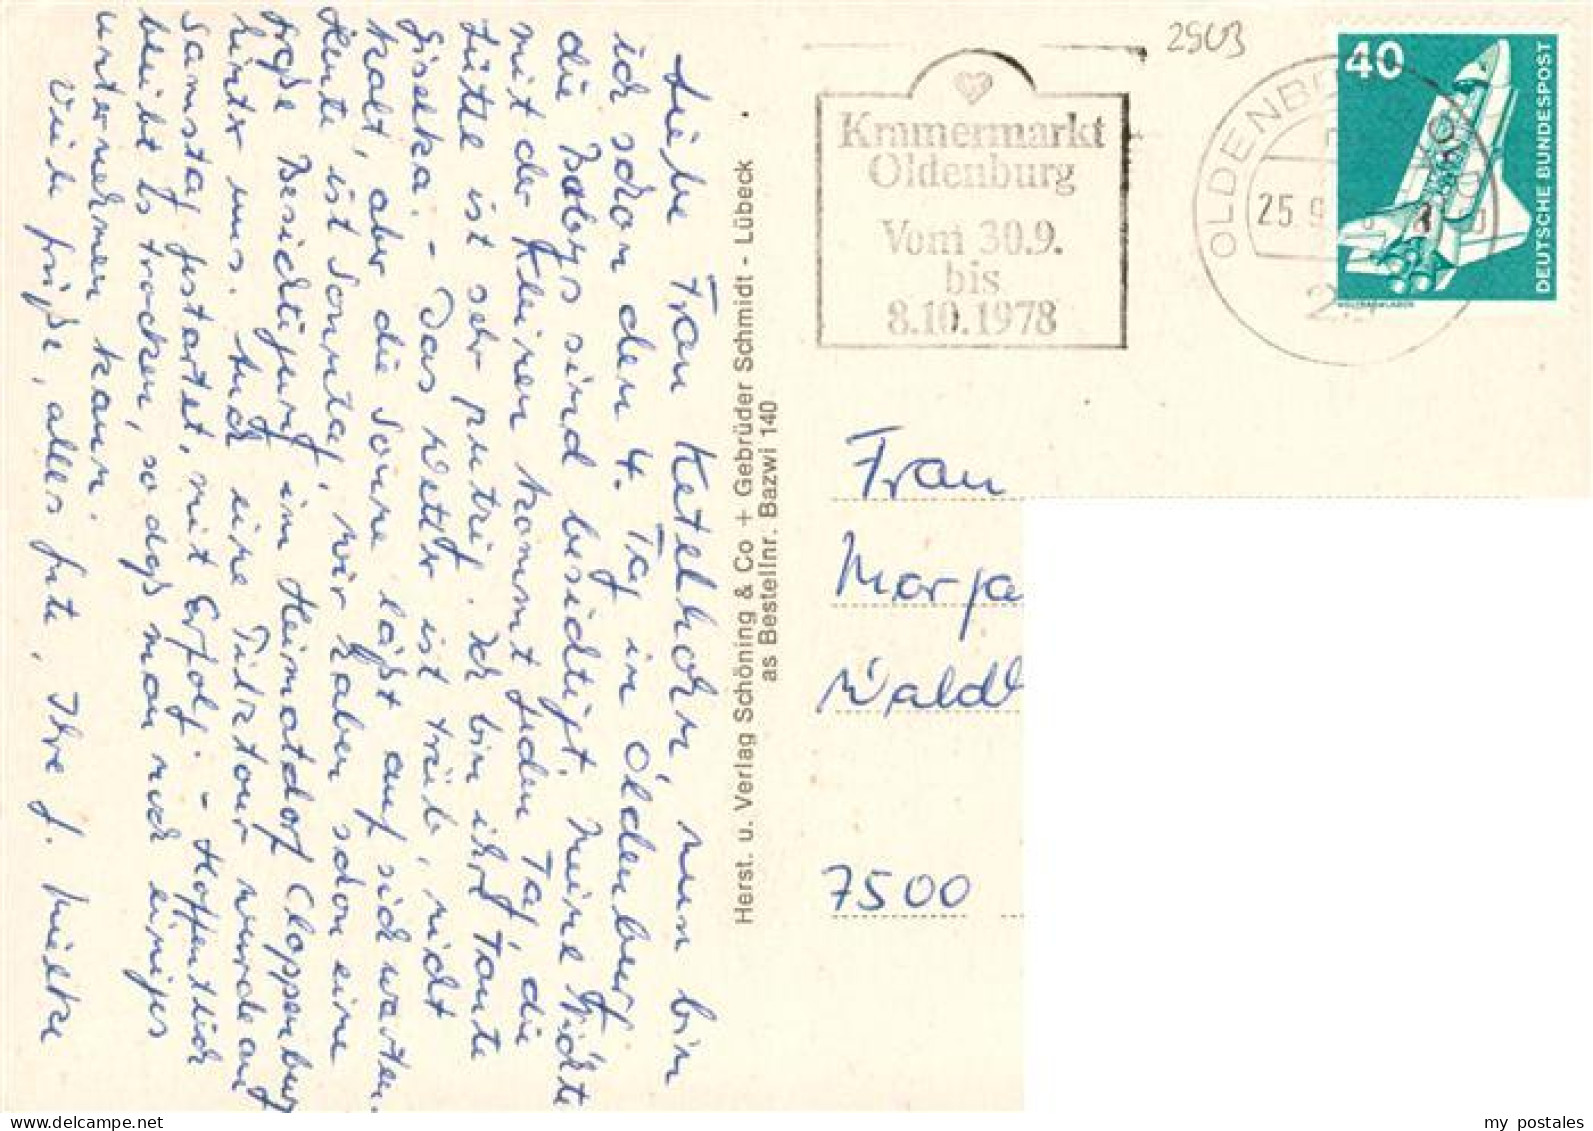 Liebe Frau Ketelhorn, nun bin
ich schon den 4. Tag in Oldenburg
die Babys sind besichtigt. Meine Nichte
mit der Kleinen kommt jeden Tag, die
Lütte ist sehr putzig. Ich bin ihre Tante
Giselka. - Das Wetter ist trüb, nicht
kalt, aber die Sonne läßt auf sich warten.
Heute ist Sonntag, wir haben schon eine
große Besichtigung im Heimatdorf Cloppenburg
hinter uns. Auch eine Tour wurde am
Samstag gestartet, mit Erfolg. - Hoffentlich
bleibt es trocken, so daß man noch einiges
unternehmen kann.
Viele Grüße, alles Gute, Ihre G. Mielke
Herst. u. Verlag Schöning & Co + Gebrüder Schmidt - Lübeck
as Bestellnr. Bazwi 140
2903
Kramermarkt
Oldenburg
Vom 30.9.
bis
8.10.1978
OLDENB
25 9
40
DEUTSCHE BUNDESPOST
Frau
Waldh
7500
my postales